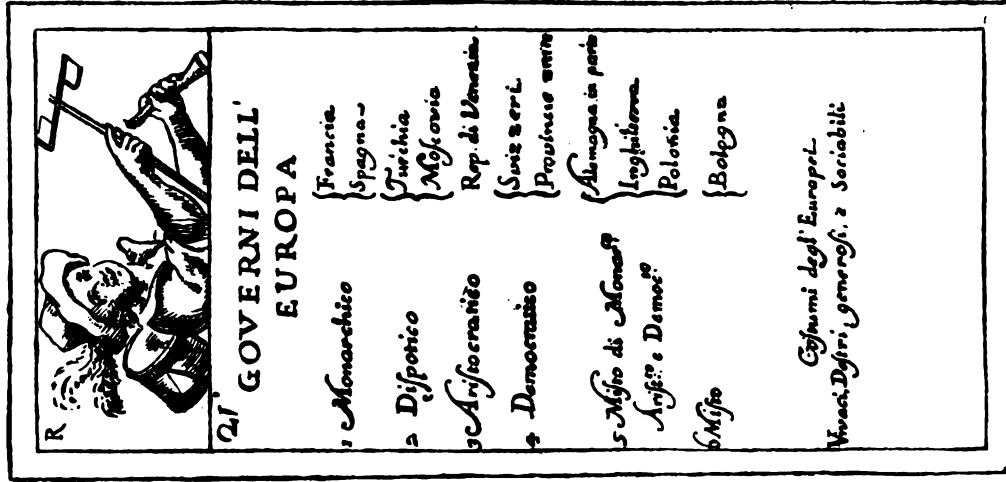 R
21
GOVERNI DELL'
EUROPA
1 Monarchico { Francia
Spagna
2 Diſpotico { Turchia
Moſcovia
3 Ariſtocratico Rep. di Venezia
4 Democratico { Suizzeri
Prouincie unite
5 Miſto di Monar.co { Alemagna in parte
Ariſt.co e Democ.co Inghilterra
Polonia
6 Miſto { Bologna
Coſtumi degl' Europei
Vivaci, Deſtri, generoſi, e Sociabili